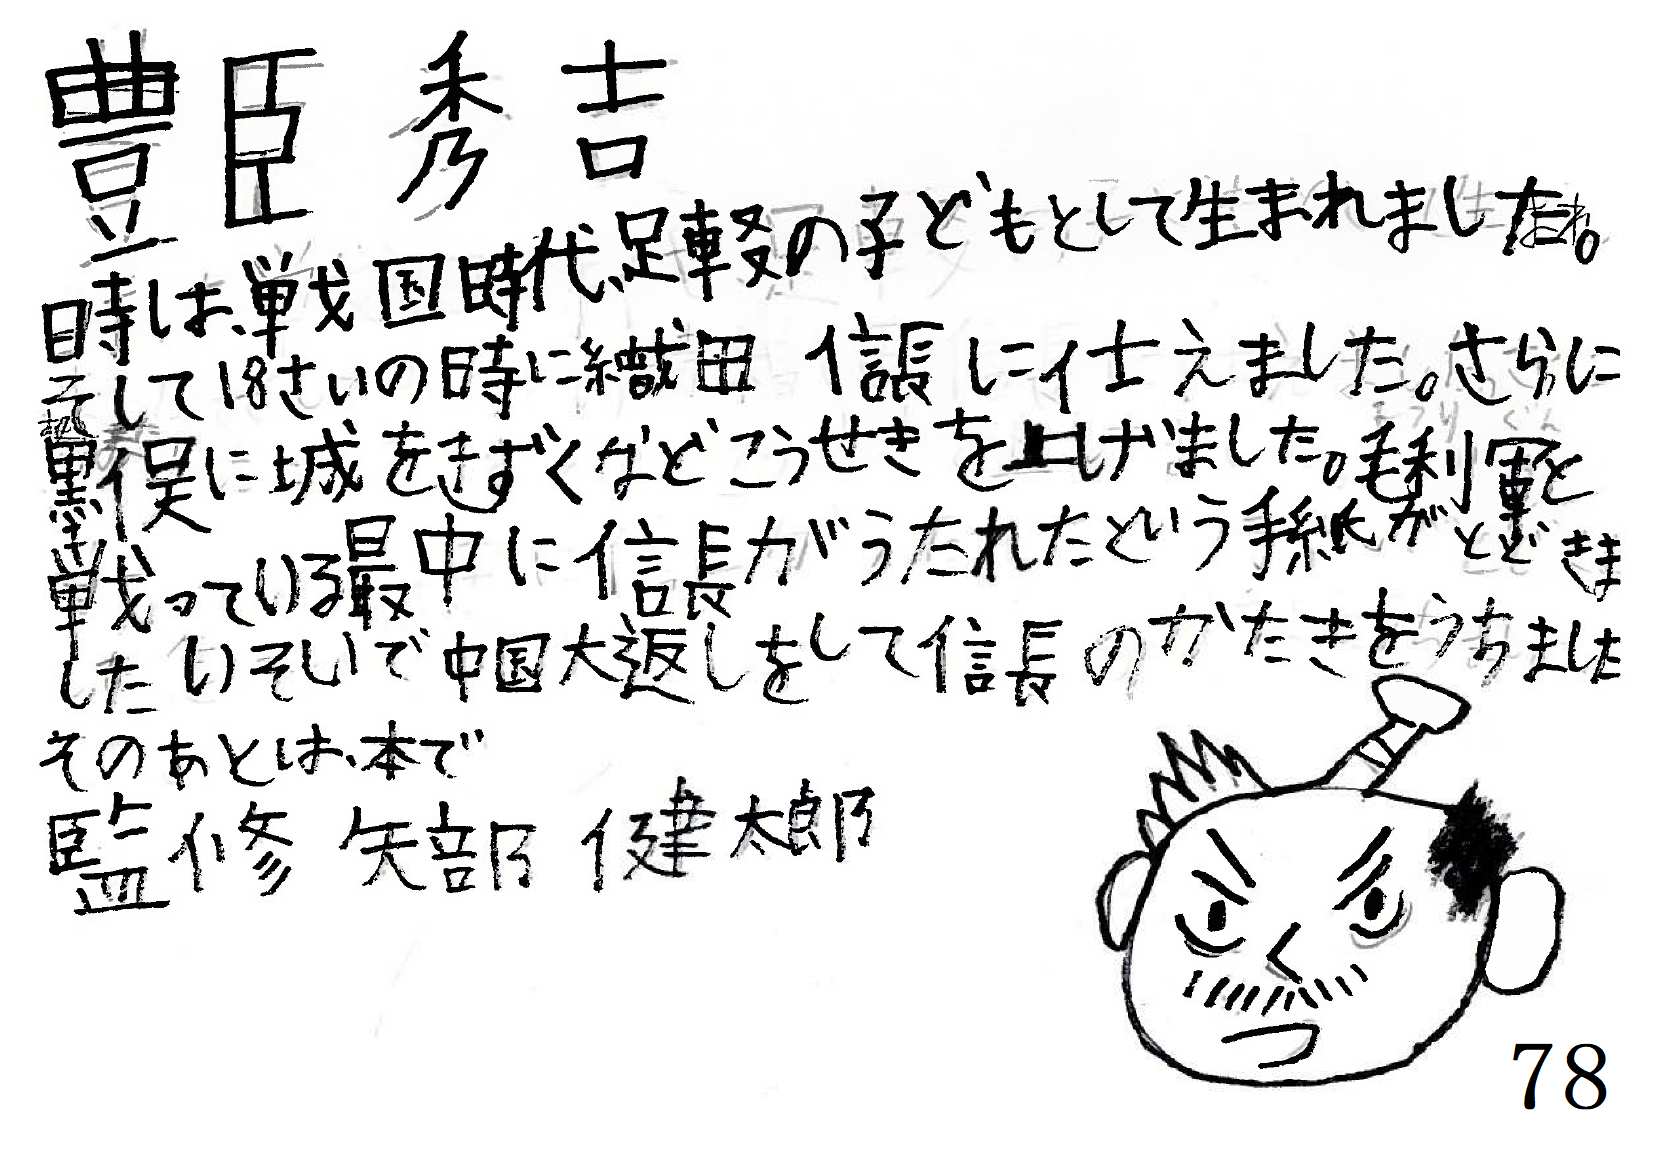 豊臣 秀吉
時は、戦国時代、足軽の子どもとして生まれました。
そして18さいの時に織田 信長に仕えました。さらに
黒俣に城をきずくなどこうせきを上げました。毛利軍と
戦っている最中に信長がうたれたという手紙がとどきま
したいそいで中国大返しをして信長のかたきをうちました
そのあとは、本で
監修 矢部 健太郎
78